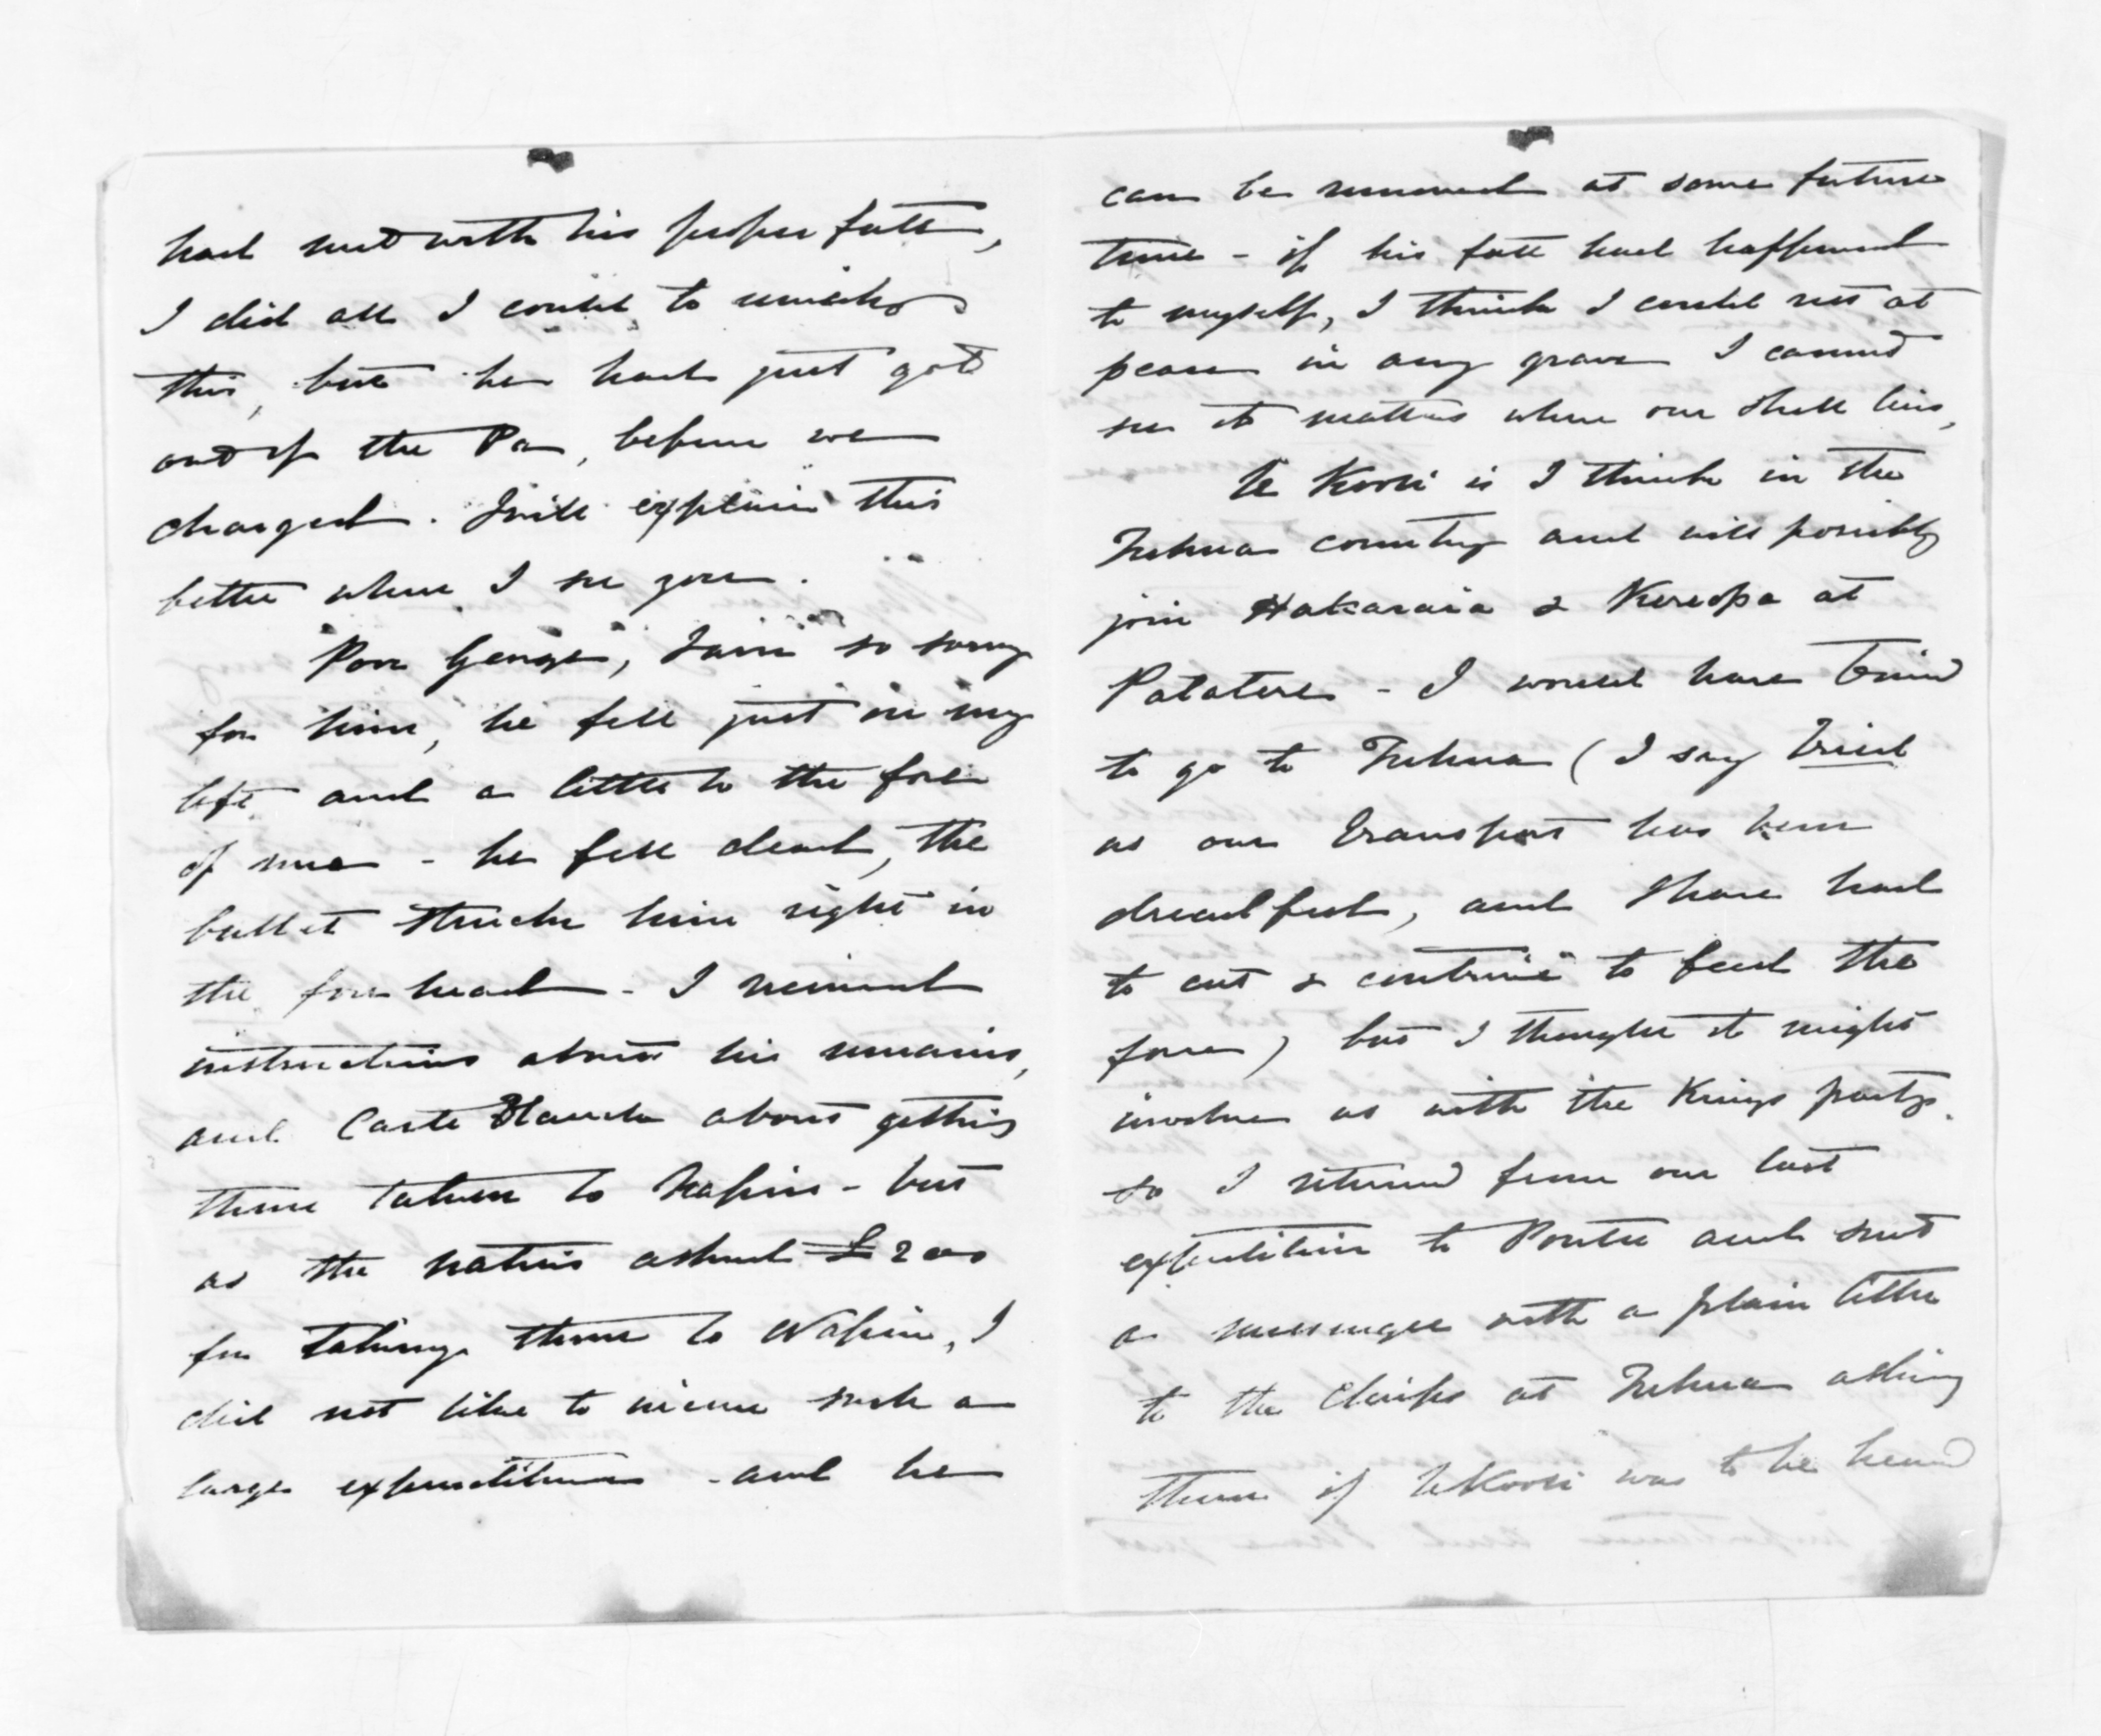 had met with his proper fate,
I did all I could to
this, but he had just got
out of the Pa, before we
charged. I will explain this
better when I see you.
Poor George, I am so sorry
for him, he fell just on my
left and a little to the fore
of me - he fell dead, the
bullet struck him right in
the forehead - I received
instructions about his remains,
and Carte Blanche about getting
them taken to Napier - but
as the natives asked £200
for taking them to Napier, I
did not like to incur such a
large expenditure - and he
can be removed at some future
time - if his fate had happened
to myself, I think I could rest at
peace in any grave I cannot
see it matters where our shell lies,
Te Kooti is I think in the
Tuhua country and will possibly
join Hakaraia & Kereopa at
Patatere - I would have tried
to go to Tuhua (I say tried
as our transport has been
dreadful, and I have had
to cut & contrive to feed the
force) but I thought it might
involve us with the Kings party.
so I returned from our last
expedition to Poutu and sent
a messenger with a plain letter
to the Cheifs at Tuhua asking
them if Te Kooti was to be heard